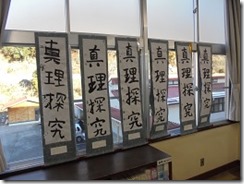 真理探究
真理探究
真理探究
真理探究
真理探究
真理探究